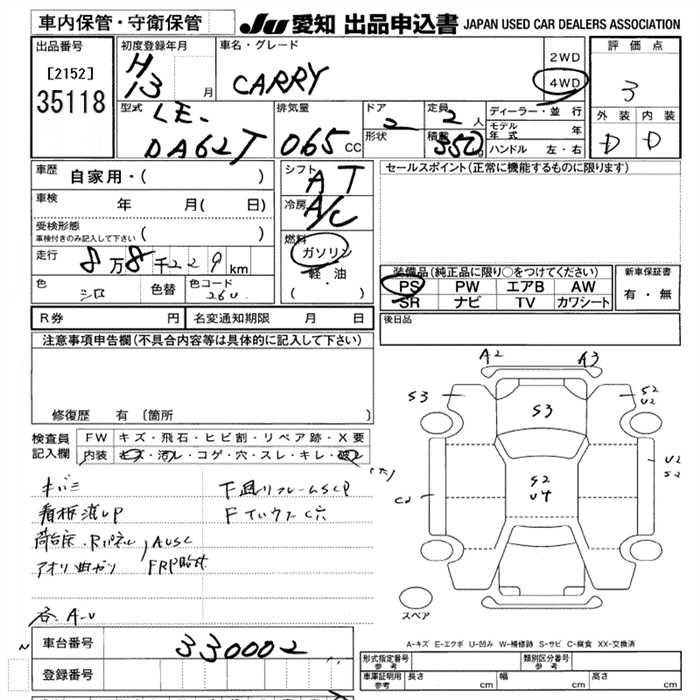 車内保管・守衛保管
JU 愛知 出品申込書 JAPAN USED CAR DEALERS ASSOCIATION
出品番号
[2152]
35118
初度登録年月
H
13 月
車名・グレード
CARRY
2WD
4WD
評価点
3
外装 内装
D D
型式
LE-
DA62T
排気量
065 CC
ドア
2
形状
定員
2 人
積載
350
ディーラー・並行
モデル年式 年
ハンドル 左・右
車歴
自家用・( )
車検
年 月( 日)
受検形態
車検付きのみ記入して下さい ( )
走行
8万8千229km
色
シロ
色替
色コード
26U
シフト
AT
冷房
A/C
燃料
ガソリン
軽・油
( )
セールスポイント(正常に機能するものに限ります)
装備品(純正品に限り○をつけてください)
PS PW エアB AW
SR ナビ TV カワシート
新車保証書
有・無
R券 円
名変通知期限 月 日
後日品
注意事項申告欄(不具合内容等は具体的に記入して下さい)
修復歴 有 〔箇所 〕
検査員
記入欄
FW キズ・飛石・ヒビ割・リペア跡・X要
内装 キズ・汚レ・コゲ・穴・スレ・キレ・破レ
キバミ
看板流UP
荷台床・Rパネル AUSC
アオリ曲ガリ FRP貼付
各A-U
下廻リフレームSCP
A2 A3
S3
S3
S2
U2
S2
U4
U2
S2
C2
スペア
A-キズ E-エクボ U-凹み W-補修跡 S-サビ C-腐食 XX-交換済
車台番号
330002
登録番号
形式指定番号
参考
類別区分番号
参考
車庫証明用
参考
長さ cm
幅 cm
高さ cm